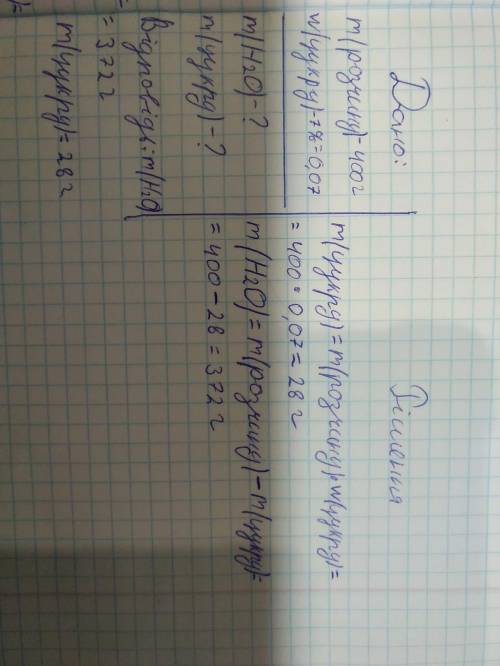 Дано:
m(розчину)-400г
w(цукру)-7%=0,07
m(H2O)-?
m(цукру)-?
Відповідь: m(H2O)
= 372г
m(цукру)=28г
Рішення
m(цукру)=m(розчину)·w(цукру)=
=400·0,07=28г
m(H2O)=m(розчину)-m(цукру)=
=400-28=372г